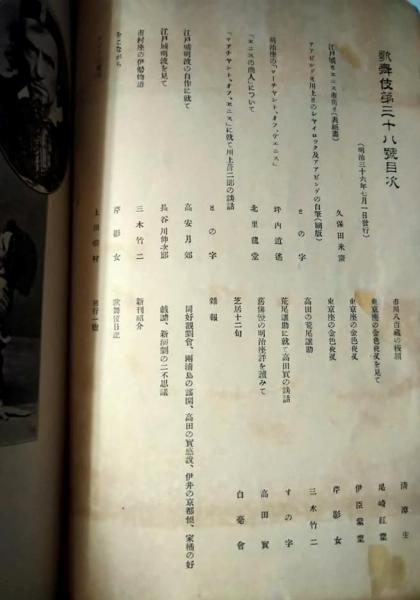 歌舞伎第三十八號目次
(明治三十六年七月一日發行)
江戸城とエニス市街
久保田米齋
アアビングと川上とのシヤイロック及アアビングの自筆
との字
明治座の「マーチヤント、オフ、ヴエニス」
坪内逍遙
「エニスの商人」について
北里龍堂
「マアチヤント、オフ、エニス」に就て川上音二郎の談話
江戸城明渡の自作に就て
高安月郊
江戸城明渡を見て
長谷川伸次郎
市村座の伊勢物語
三木竹二
をこながら
芹影女
市川八百藏の桜痴
清潭生
東京座の金色夜叉を見て
尾崎紅葉
東京座の金色夜叉
伊臣紫葉
東京座の金色夜叉
芹影女
高田の荒尾讓助
三木竹二
荒尾讓助に就て高田實の談話
すの字
舊俳優の明治座評を讀みて
高田實
芝居十二旬
白毫會
雜報
同好觀劇會、兩浦島の謠園、高田の實感説、伊井の京都談、家橘の好
戯談、新演劇の二不思議
新刊紹介
歌舞伎日記